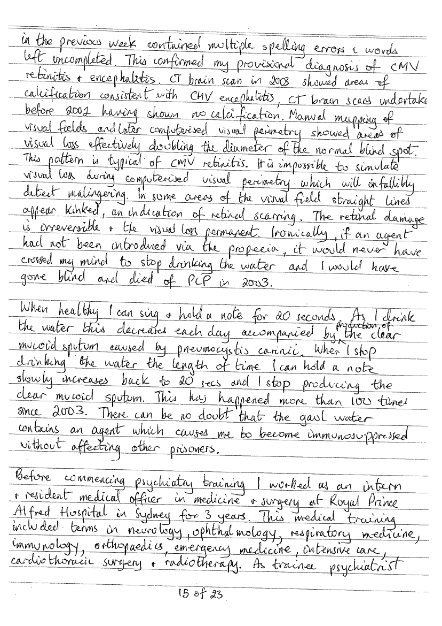 in the previous week contained multiple spelling errors & words
left uncompleted. This confirmed my provisional diagnosis of CMV
retinitis & encephalitis. CT brain scan in 2003 showed areas of
calcification consistent with CMV encephalitis, CT brain scans undertaken
before 2002 having shown no calcification. Manual mapping of
visual fields and later computerised visual perimetry showed areas of
visual loss effectively doubling the diameter of the normal blind spot.
This pattern is typical of CMV retinitis. It is impossible to simulate
visual loss during computerised visual perimetry which will infallibly
detect malingering. In some areas of the visual field straight lines
appear kinked, an indication of retinal scarring. The retinal damage
is irreversible & the visual loss permanent. Ironically, if an agent
had not been introdved via the propecia, it would never have
crossed my mind to stop drinking the water and I would have
gone blind and died of PCP in 2003.
When healthy I can sing & hold a note for 20 seconds. As I drink
the water this decreases each day accompanied by production of the clear
mucoid sputum caused by pneumocystis carinii. When I stop
drinking the water the length of time I can hold a note
slowly increases back to 20 secs and I stop producing the
clear mucoid sputum. This has happened more than 100 times
since 2003. There can be no doubt that the gaol water
contains an agent which causes me to become immunosuppressed
without affecting other prisoners.
Before commencing psychiatry training I worked as an intern
& resident medical officer in medicine & surgery at Royal Prince
Alfred Hospital in Sydney for 3 years. This medical training
included terms in neurology, ophthalmology, respiratory medicine,
immunology, orthopaedics, emergency medicine, intensive care,
cardiothoracic surgery & radiotherapy. As trainee psychiatrist
15 of 23